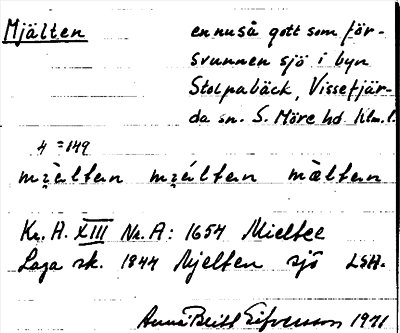 Mjälten
ennuså gott som för-
svunnen sjö i byn
Stolpabäck, Vissefjär-
da sn. S. Möre hd Klm.l.
4 = 149
Kr. A. XIII Nr. A: 1654 Mieltee
Laga sk. 1844 Mjelten sjö LSA.
Anna Britt Sifvenson 1971